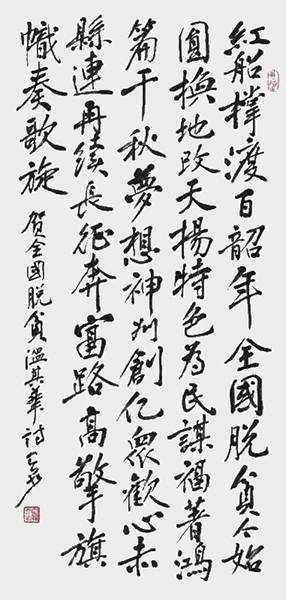 紅船撑渡百韶年全國脱貧今始
圓換地改天揚特色為民謀福著鴻
篇千秋夢想神州創亿衆歡心赤
縣連再續長征奔富路高擎旗
幟奏歌旋
贺全國脱貧温其華诗